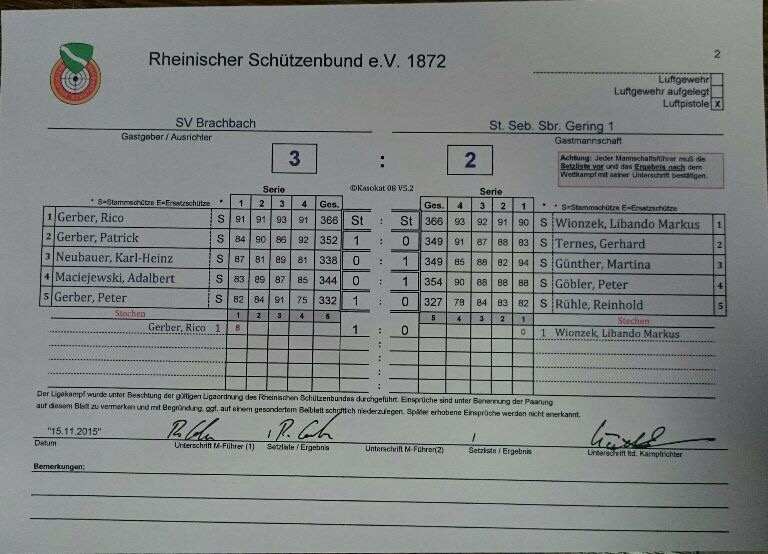 Rheinischer Schützenbund e.V. 1872
2
Luftgewehr
Luftgewehr aufgelegt
Luftpistole X
SV Brachbach
St. Seb. Sbr. Gering 1
Gastgeber / Ausrichter
Gastmannschaft
3 : 2
Achtung: Jeder Mannschaftsführer muß die
Setzliste vor und das Ergebnis nach dem
Wettkampf mit seiner Unterschrift bestätigen.
Serie ©Kasokat 08 V5.2 Serie
* S=Stammschütze E=Ersatzschütze * 1 2 3 4 Ges. Ges. 4 3 2 1 * * S=Stammschütze E=Ersatzschütze
1 Gerber, Rico S 91 91 93 91 366 St : St 366 93 92 91 90 S Wionzek, Libando Markus 1
2 Gerber, Patrick S 84 90 86 92 352 1 : 0 349 91 87 88 83 S Ternes, Gerhard 2
3 Neubauer, Karl-Heinz S 87 81 89 81 338 0 : 1 349 85 88 82 94 S Günther, Martina 3
4 Maciejewski, Adalbert S 83 89 87 85 344 0 : 1 354 90 88 88 88 S Göbler, Peter 4
5 Gerber, Peter S 82 84 91 75 332 1 : 0 327 78 84 83 82 S Rühle, Reinhold 5
Stechen 1 2 3 4 5 5 4 3 2 1 Stechen
Gerber, Rico 1 8 1 : 0 0 1 Wionzek, Libando Markus
:
:
:
Der Ligakampf wurde unter Beachtung der gültigen Ligaordnung des Rheinischen Schützenbundes durchgeführt. Einsprüche sind unter Benennung der Paarung
auf diesem Blatt zu vermerken und mit Begründung, ggf. auf einem gesondertem Beiblatt schriftlich niederzulegen. Später erhobene Einsprüche werden nicht anerkannt.
"15.11.2015" / /
Datum Unterschrift M-Führer (1) Setzliste / Ergebnis Unterschrift M-Führer(2) Setzliste / Ergebnis Unterschrift ltd. Kampfrichter
Bemerkungen: